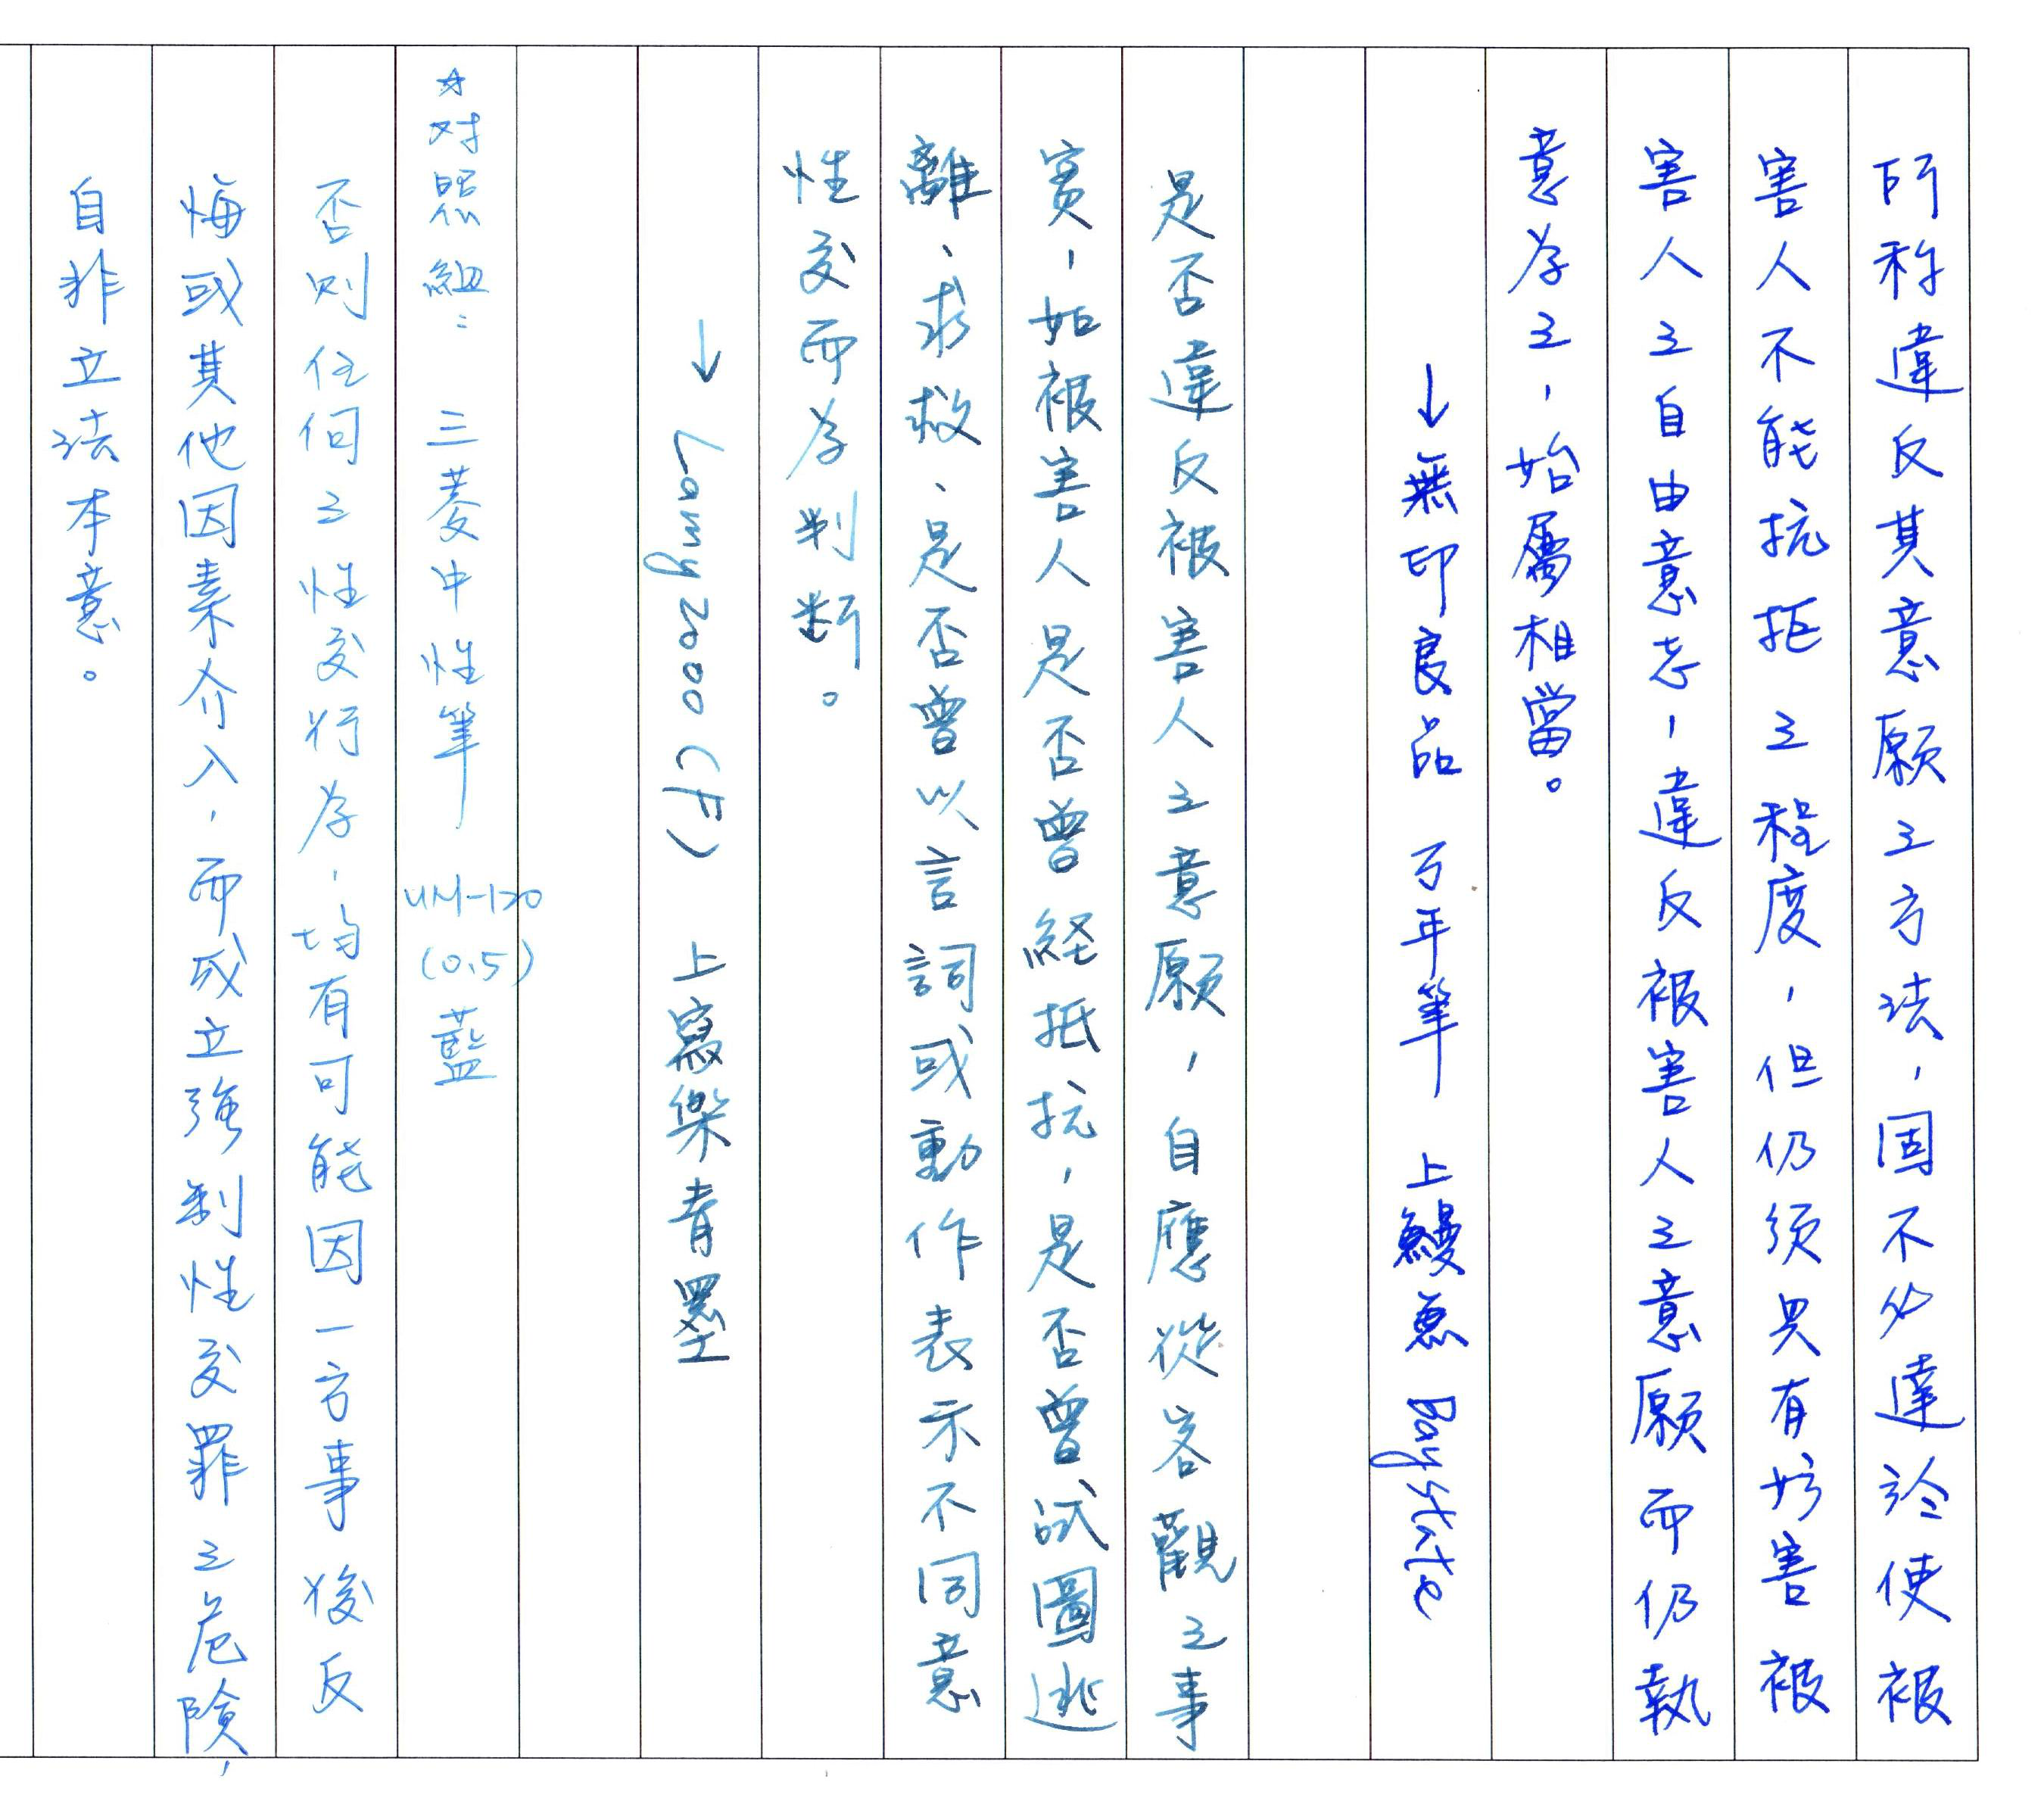 所称違反其意願之方法，固不必達於使被
害人不能抗拒之程度，但仍须具有妨害被
害人之自由意志，違反被害人之意願而仍執
意為之，始屬相當。
↓無印良品 万年筆 上鰻魚 Baystate
是否違反被害人之意願，自應從客觀之事
實，如被害人是否曾経抵抗，是否曾試圖逃
離、求救、是否曾以言詞或動作表示不同意
性交而為判断。
↓ Lamy2000（F） 上寫樂青墨
☆对照組： 三菱中性筆 UM-120 (0.5) 藍
否则任何之性交行為，均有可能因一方事後反
悔或其他因素介入，而成立強制性交罪之危険，
自非立法本意。